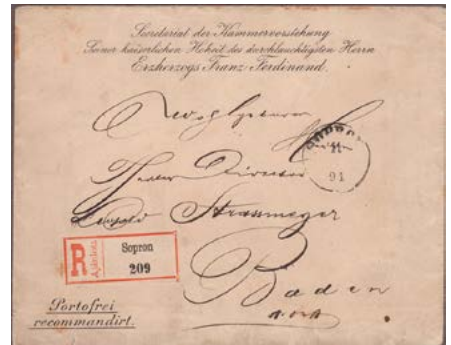 Secretariat der Kammervorstehung
Seiner kaiserlichen Hoheit des durchlauchtigsten Herrn
Erzherzogs Franz Ferdinand.
Herrn Director
Strasmayer
R Ajánlás Sopron
209
Baden
Portofrei
recommandirt.